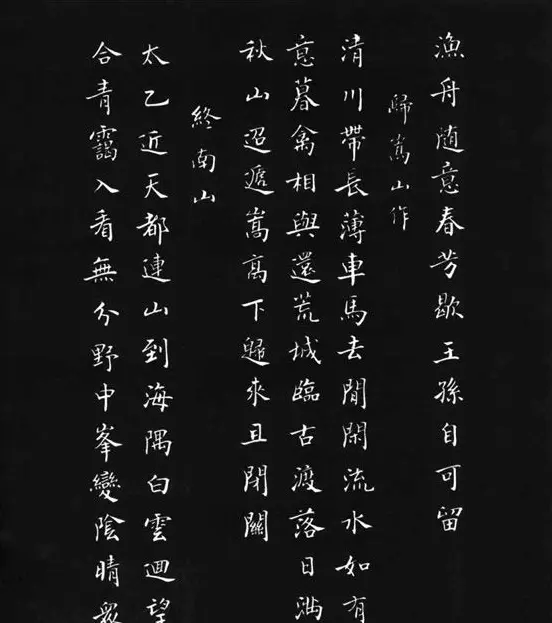 漁舟随意春芳歇王孫自可留
歸嵩山作
清川帶長薄車馬去閒閑流水如有
意暮禽相與還荒城臨古渡落日滿
秋山迢遞嵩高下歸來且閉關
終南山
太乙近天都連山到海隅白雲迴望
合青靄入看無分野中峯變陰晴衆